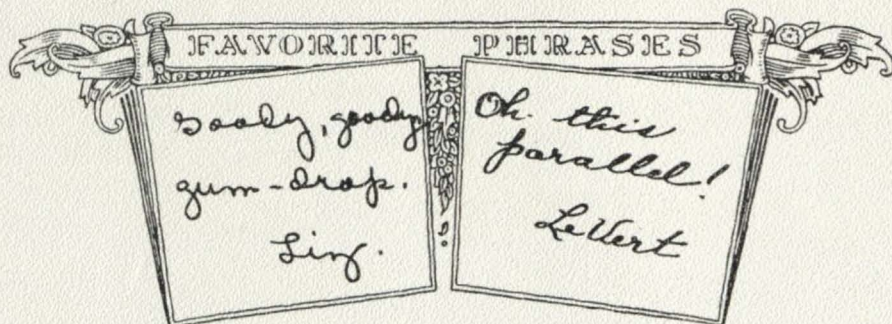 FAVORITE PHRASES
Goody, goody
gum-drop.
Liz.
Oh this
parallel!
LeVert